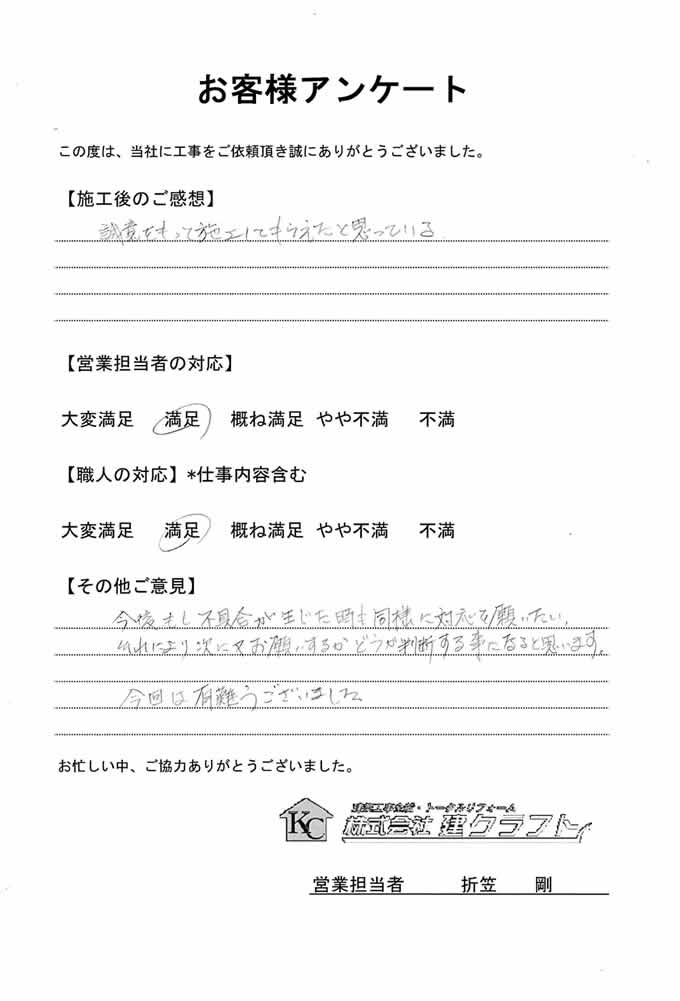 お客様アンケート
この度は、当社に工事をご依頼頂き誠にありがとうございました。
【施工後のご感想】
誠意をもって施工してもらえたと思っている
【営業担当者の対応】
大変満足 満足 概ね満足 やや不満 不満
【職人の対応】*仕事内容含む
大変満足 満足 概ね満足 やや不満 不満
【その他ご意見】
今後もし不具合が生じた時も同様に対応を願いたい。
それにより次に又お願いするかどうか判断する事になると思います。
今回は有難うございました
お忙しい中、ご協力ありがとうございました。
KC
建築工事全般・トータルリフォーム
株式会社 建クラフト
営業担当者 折笠 剛